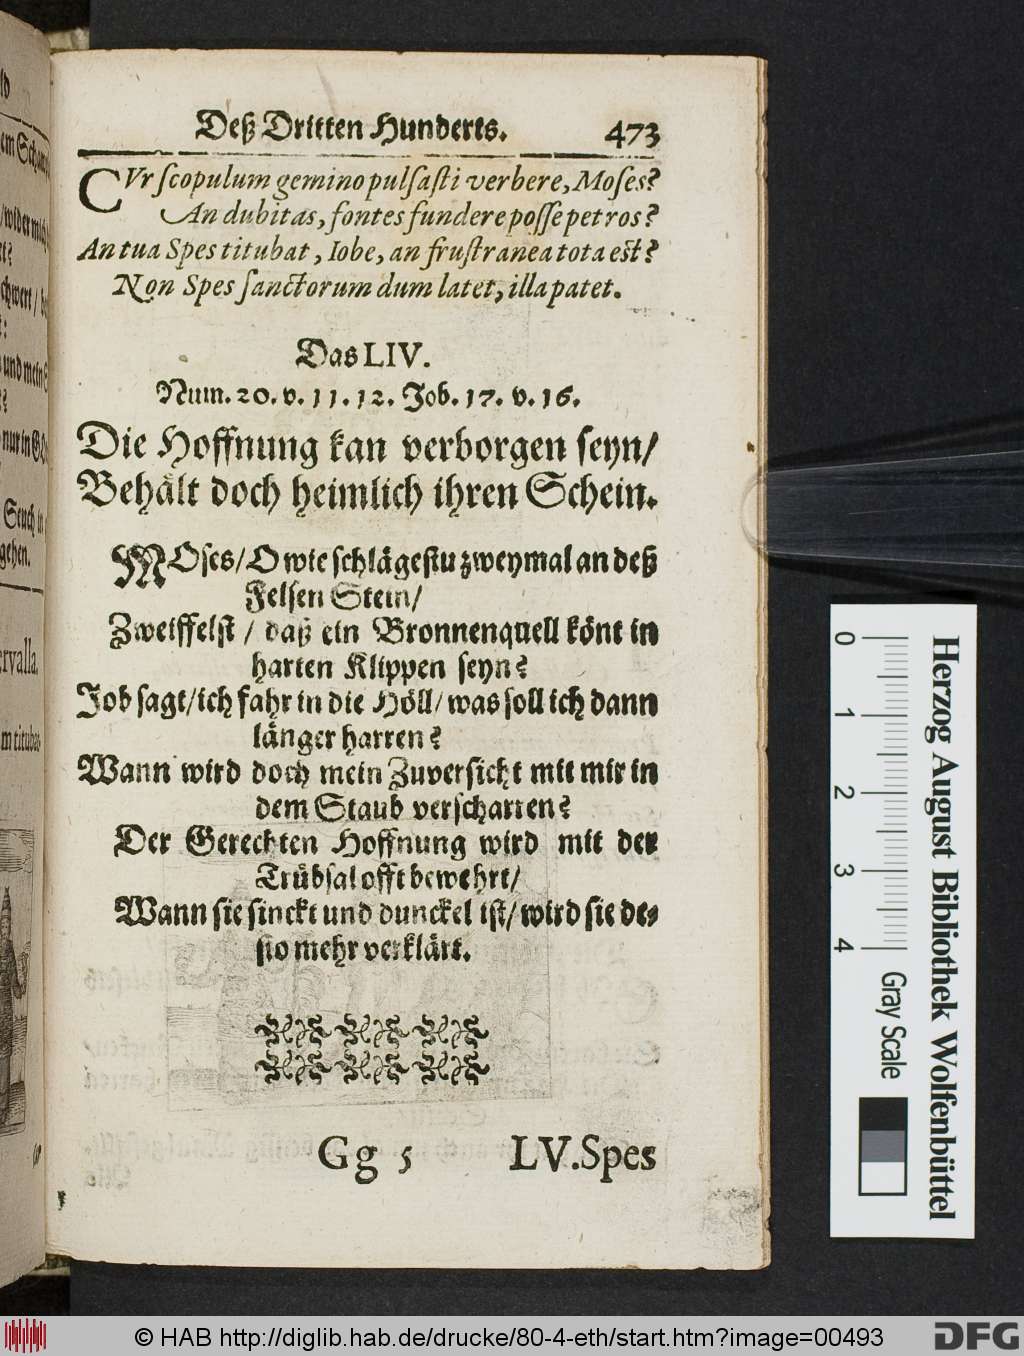 Deß Dritten Hunderts. 473
CVr scopulum gemino pulsasti verbere, Moses?
An dubitas, fontes fundere posse petros?
An tua Spes titubat, Iobe, an frustranea tota est?
Non Spes sanctorum dum latet, illa patet.
Das LIV.
Num. 20. v. 11. 12. Job. 17. v. 16.
Die Hoffnung kan verborgen seyn/
Behält doch heimlich ihren Schein.
MOses/ O wie schlägestu zweymal an deß
Felsen Stein/
Zweiffelst / daß ein Bronnenquell könt in
harten Klippen seyn?
Job sagt/ ich fahr in die Höll/ was soll ich dann
länger harren?
Wann wird doch mein Zuversicht mit mir in
dem Staub verscharren?
Der Gerechten Hoffnung wird mit der
Trübsal offt bewehrt/
Wann sie sinckt und dunckel ist/ wird sie de-
sto mehr verklärt.
Gg 5 LV. Spes
0 1 2 3 4
Gray Scale
Herzog August Bibliothek Wolfenbüttel
© HAB http://diglib.hab.de/drucke/80-4-eth/start.htm?image=00493
DFG